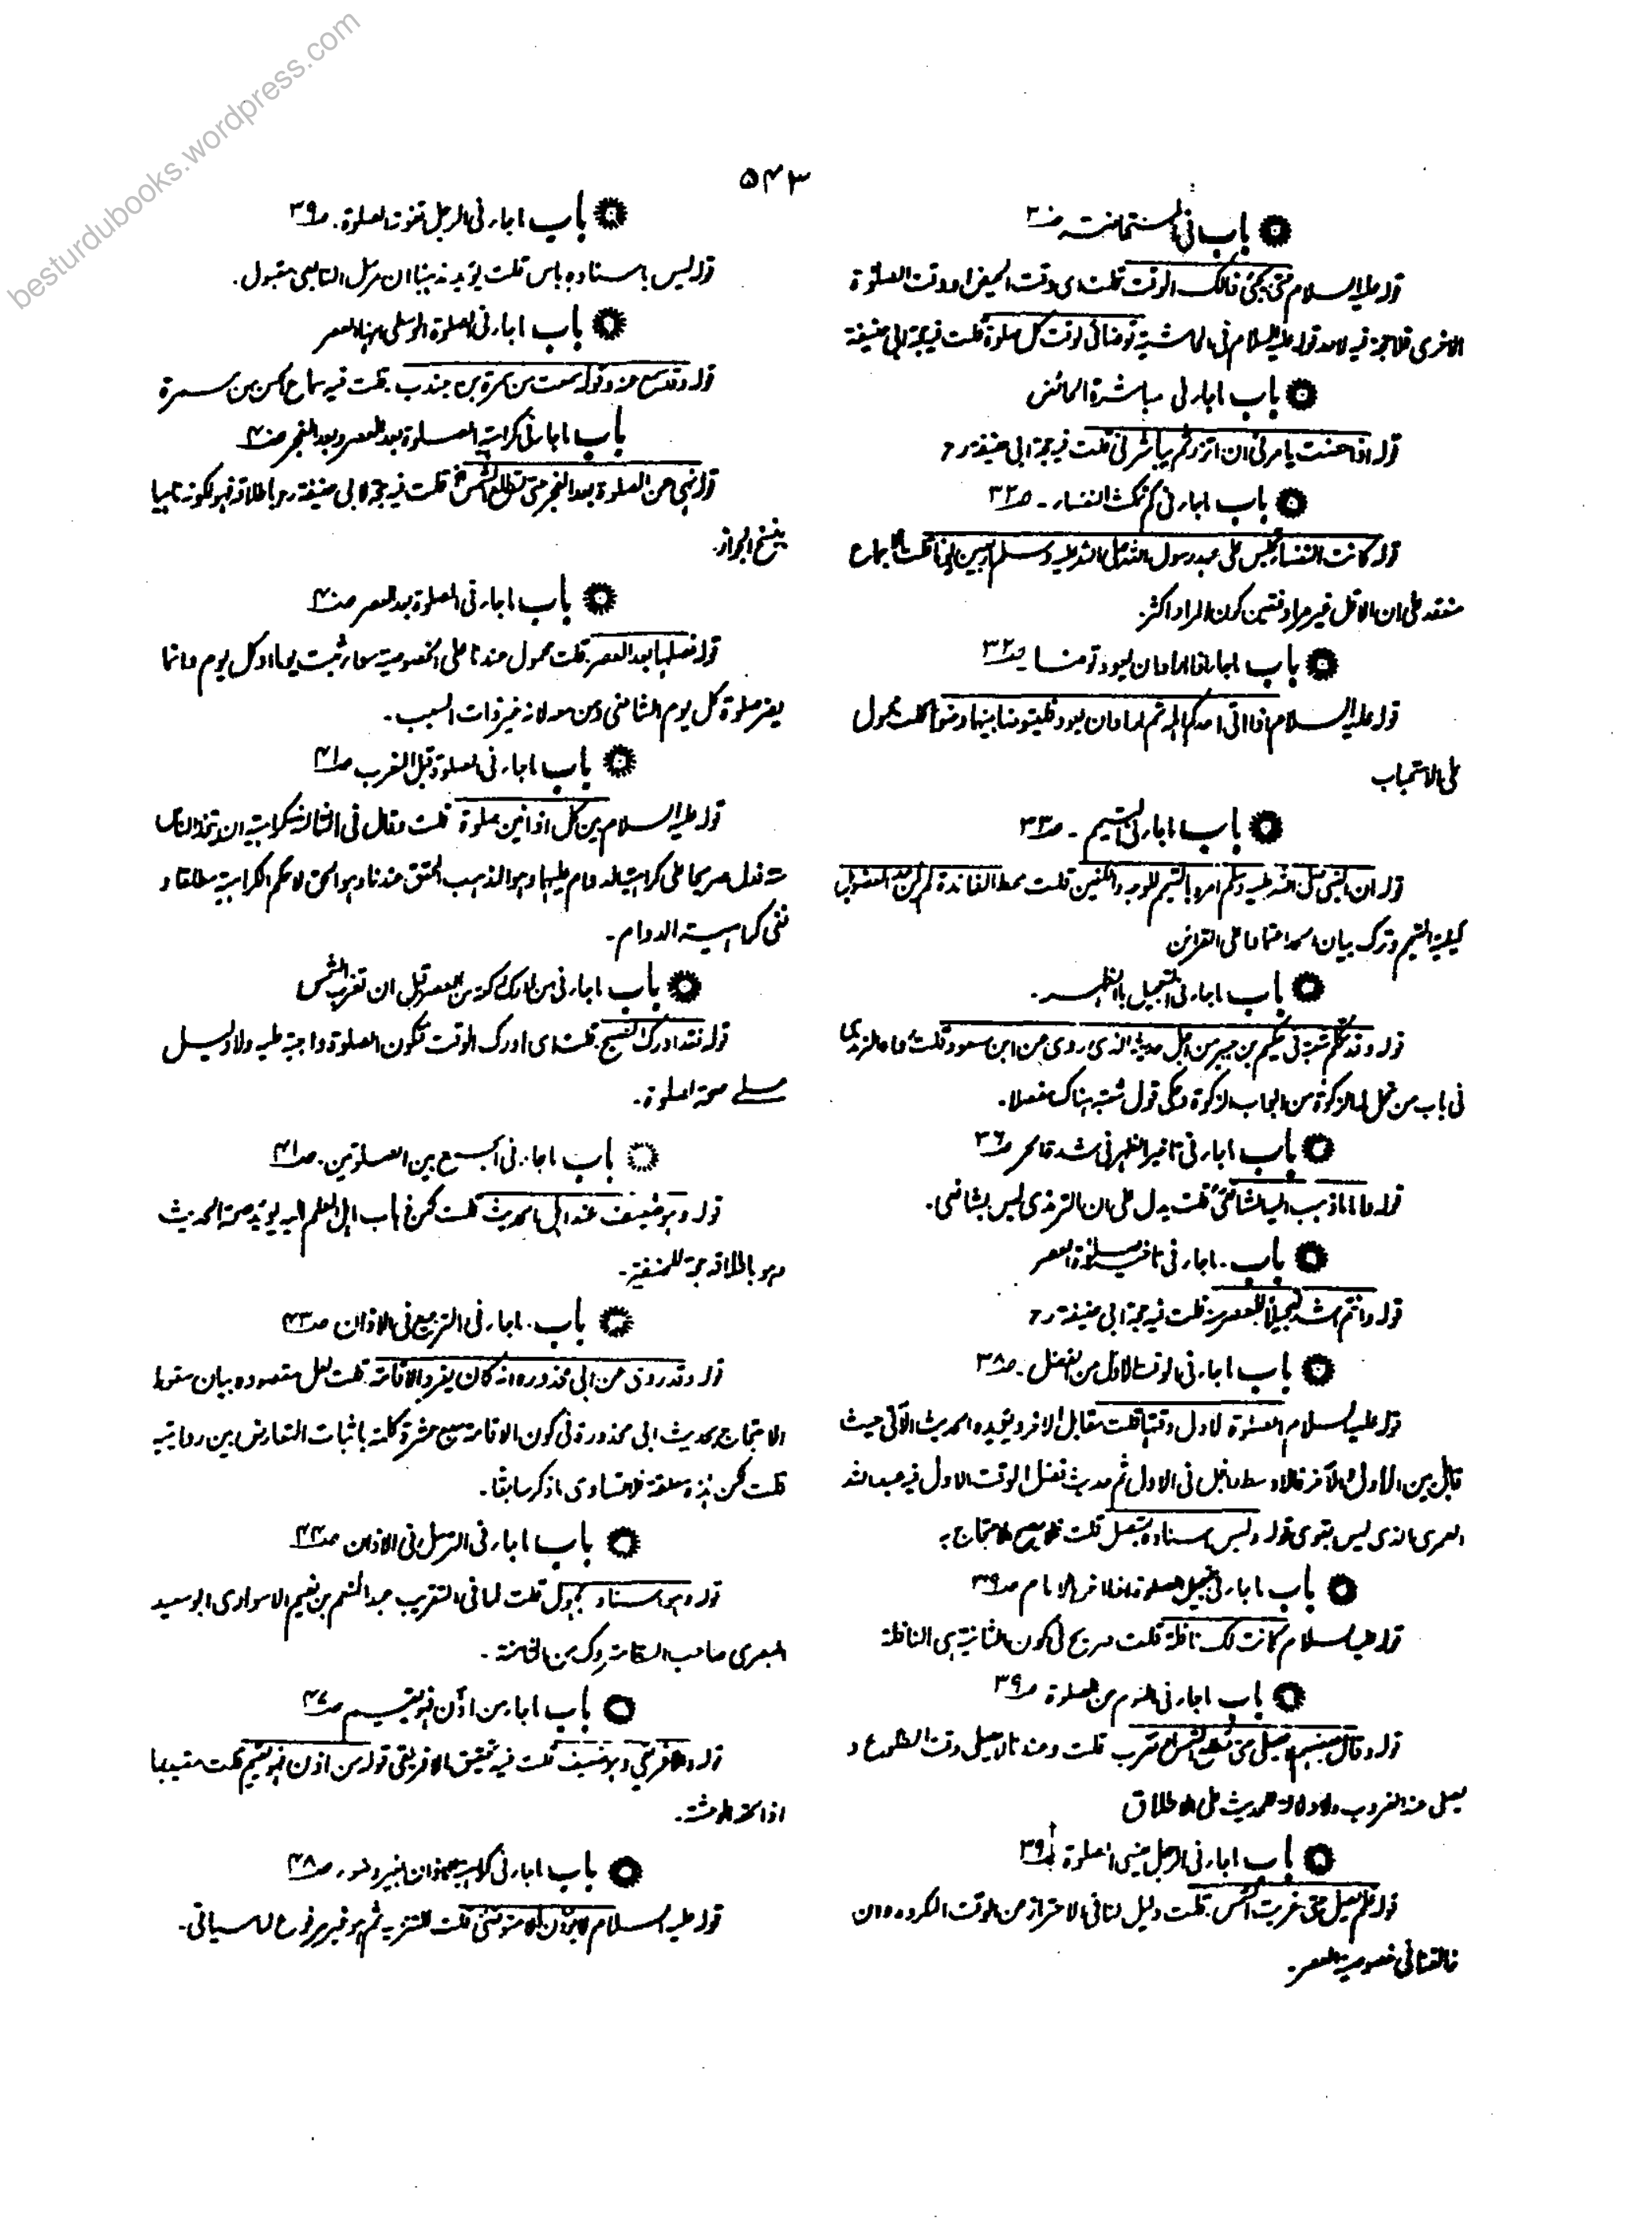 besturdubooks.wordpress.com
۵۴۳
باب فی المستحاضة صـ۳۰
قوله علیه السلام حتی یجئ ذالک الوقت قلت ای وقت الحیض او وقت الصلوة
الاخری فلا حجة فیه لاحد قوله علیه السلام فی الحاشیة توضأئی لوقت کل صلوة قلت فیه حجة ابی حنیفة
باب ماجاء فی مباشرة الحائض
قوله اذا حضت یامرنی ان اتزر ثم یباشرنی قلت فیه حجة ابی حنیفة رح
باب ماجاء فی کم تمکث النفساء ۔ صـ۳۲
قوله کانت النفساء تجلس علی عهد رسول الله صلی الله علیه وسلم اربعین یوما قلت الاجماع
منعقد علی ان الاقل غیر مراد فتعین کون المراد اکثر
باب ماجاء اذا اراد ان یعود توضأ صـ۳۲
قوله علیه السلام اذا اتی احدکم اهله ثم اراد ان یعود فلیتوضأ بینهما وضوءا قلت محمول
علی الاستحباب
باب ماجاء فی التیمم ۔ صـ۳۳
قوله ان النبی صلی الله علیه وسلم امره بالتیمم للوجه والکفین قلت محط الفائدة
کیفیة التیمم وترک بیان الحد اعتمادا علی القرائن
باب ماجاء فی التعجیل بالظهر ۔
قوله وقد تکلم شعبة فی حکیم بن جبیر من اجل حدیثه الذی روی عن ابن مسعود قلت
فی باب من تحل له الزکوة من ابواب الزکوة وحکی قول شعبة هناک مفصلا۔
باب ماجاء فی تاخیر الظهر فی شدة الحر صـ۳۶
قوله واما ما ذهب الیه الشافعی قلت یدل علی ان الترمذی لیس بشافعی۔
باب ۔ ماجاء فی تاخیر صلوة العصر
قوله وانتم اشد تعجیلا للعصر منه قلت فیه حجة ابی حنیفة رح
باب ماجاء فی الوقت الاول من الفضل ۔ صـ۳۸
قوله علیه السلام الصلوة لاول وقتها قلت مقابل الآخر ویؤیده الحدیث الآتی حیث
قابل بین الاول والآخر فالاوسط داخل فی الاول ثم حدیث فضل الوقت الاول فیه عبد الله
العمری الذی لیس بقوی قوله ولیس اسناده بمتصل قلت فلا یصح الاحتجاج به
باب ماجاء فی تعجیل الصلوة اذا اخرها الامام صـ۳۹
قوله علیه السلام کانت لک نافلة قلت صریح فی کون الثانیة هی النافلة
باب ماجاء فی النوم عن الصلوة صـ۳۹
قوله وقال بعضهم لا یصلی حتی تطلع الشمس او تغرب قلت وعندنا لا یصلی وقت الطلوع و
یصلی عند الغروب ولا دلالة للحدیث علی الاطلاق
باب ماجاء فی الرجل ینسی الصلوة صـ۳۹
قوله فلم یصل حتی غربت الشمس ۔ قلت دلیل لنا فی الاحتراز عن الوقت المکروه وان
خالفنا فی خصوصیة العصر۔
باب ماجاء فی الرجل تفوته الصلوة ۔ صـ۳۹
قوله لیس باسناده باس قلت یؤید مذهبنا ان مرسل التابعی مقبول۔
باب ماجاء فی الصلوة الوسطی انها العصر
قوله وقد سمع منه وقوله سمعت من سمرة بن جندب ۔ قلت فیه سماع الحسن من سمرة
باب ماجاء فی کراهیة الصلوة بعد العصر وبعد الفجر صـ۴۰
قوله نهی عن الصلوة بعد الفجر حتی تطلع الشمس الخ قلت فیه حجة لابی حنیفة رح باطلاقه فهو لکونه ناهیا
ینسخ الجواز۔
باب ماجاء فی الصلوة بعد العصر صـ۴۰
قوله فصلیهما بعد العصر ۔ قلت محمول عندنا علی الخصوصیة سواء ثبت یوما او کل یوم وانما
یضر صلوة کل یوم الشافعی ومن معه لانه غیر ذات السبب ۔
باب ماجاء فی الصلوة قبل المغرب صـ۴۱
قوله علیه السلام بین کل اذانین صلوة قلت وقال فی الثالثة کراهیة ان یتخذ الناس
سنة فدل صریحا علی کراهیة الدوام علیها وهو المذهب المحقق عندنا وهو الحق لا حکم الکراهیة مطلقا و
نفی کراهیة الدوام۔
باب ماجاء فی من ادرک رکعة من العصر قبل ان تغرب الشمس
قوله فقد ادرک الصبح ۔ قلت ای ادرک الوقت فتکون الصلوة واجبة علیه ولا دلیل
علی صحة الصلوة۔
باب ماجاء فی الجمع بین الصلوتین ۔ صـ۴۱
قوله وهو ضعیف عند اهل الحدیث قلت لکن ذهاب اهل العلم الیه یؤید صحة الحدیث
وهو باطلاقه حجة للحنفیة۔
باب ۔ ماجاء فی الترجیع فی الاذان صـ۴۳
قوله وقد روی عن ابی محذورة انه کان یفرد الاقامة ۔ قلت لعل مقصوده بیان سقوط
الاحتجاج بحدیث ابی محذورة فی کون الاقامة سبع عشرة کلمة باثبات التعارض بین روایتیه
قلت لکن هذه معلقة فلا تساوی ما ذکر سابقا۔
باب ماجاء فی الترسل فی الاذان صـ۴۴
قوله وهو اسناد مجهول قلت لما فی التقریب عبد المنعم بن نعیم الاسواری ابو سعید
البصری صاحب السقاء متروک من الثامنة۔
باب ماجاء من اذن فهو یقیم صـ۴۷
قوله والافریقی وهو ضعیف قلت فیه تحقیق الافریقی قوله من اذن فهو یقیم قلت مقیدا
اذا لحقه الوحشة۔
باب ماجاء فی کراهیة الاذان بغیر وضوء ۔ صـ۴۸
قوله علیه السلام لا یؤذن الا متوضئ قلت للتنزیه ثم هو غیر مرفوع لما سیأتی۔